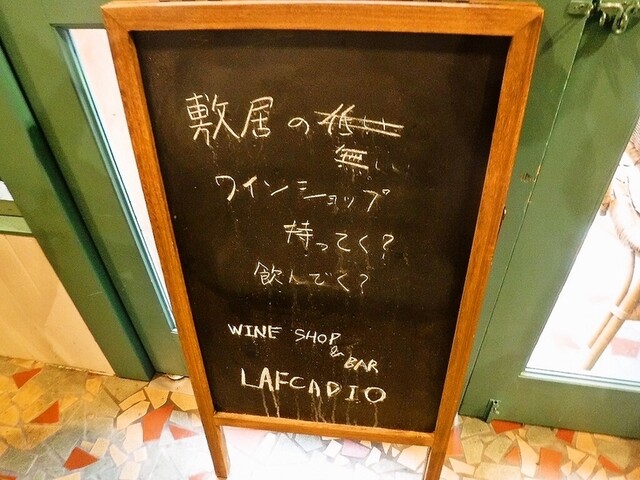 敷居の低い
無い
ワインショップ
持ってく?
飲んでく?
WINE SHOP
&
BAR
LAFCADIO